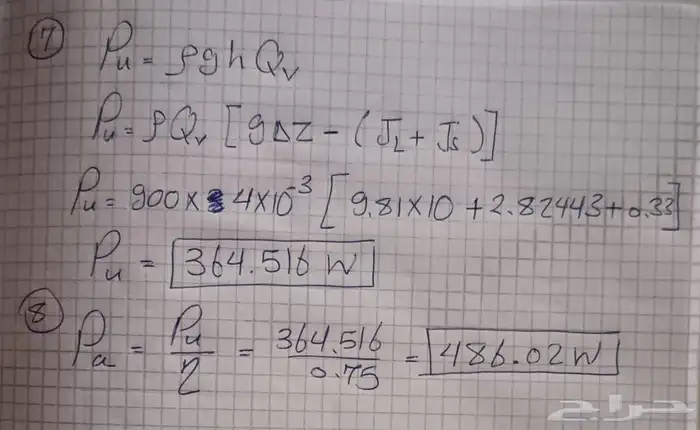 ⑦ Pu = ρghQv
Pu = ρQv [gΔZ - (JL + Js)]
Pu = 900 × 4×10⁻³ [9.81×10 + 2.82443 + 0.33]
Pu = 364.516 W
⑧ Pa = Pu/η = 364.516/0.75 = 486.02 W
حراج